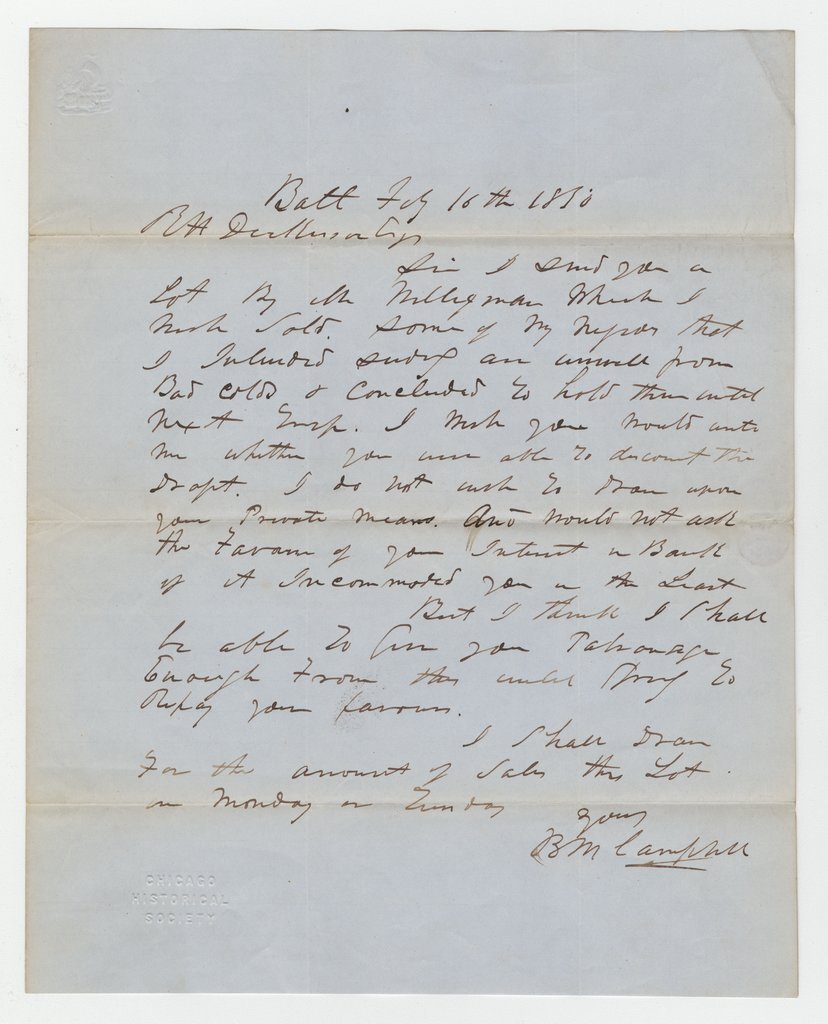 Balt Feby 16th 1850
RH Dickinson Esqr
Sir I send you a
Lot By Mr Williamson Which I
Wish Sold. Some of My Negros that
I Intended sending are unwell from
Bad colds & Concluded to hold them until
Next Trip. I Wish you Would write
me whether you were able to discount the
Draft. I do not wish to Draw upon
your Private means. And Would not ask
the Favour of your Interest in Bank
if it Incommoded you in the Least
But I think I Shall
be able to Give you Patronage
Enough From this until Spring to
Repay your favours.
I Shall Draw
For the amount of Sales this Lot
on Monday or Tuesday
yours
BM Campbell
CHICAGO
HISTORICAL
SOCIETY